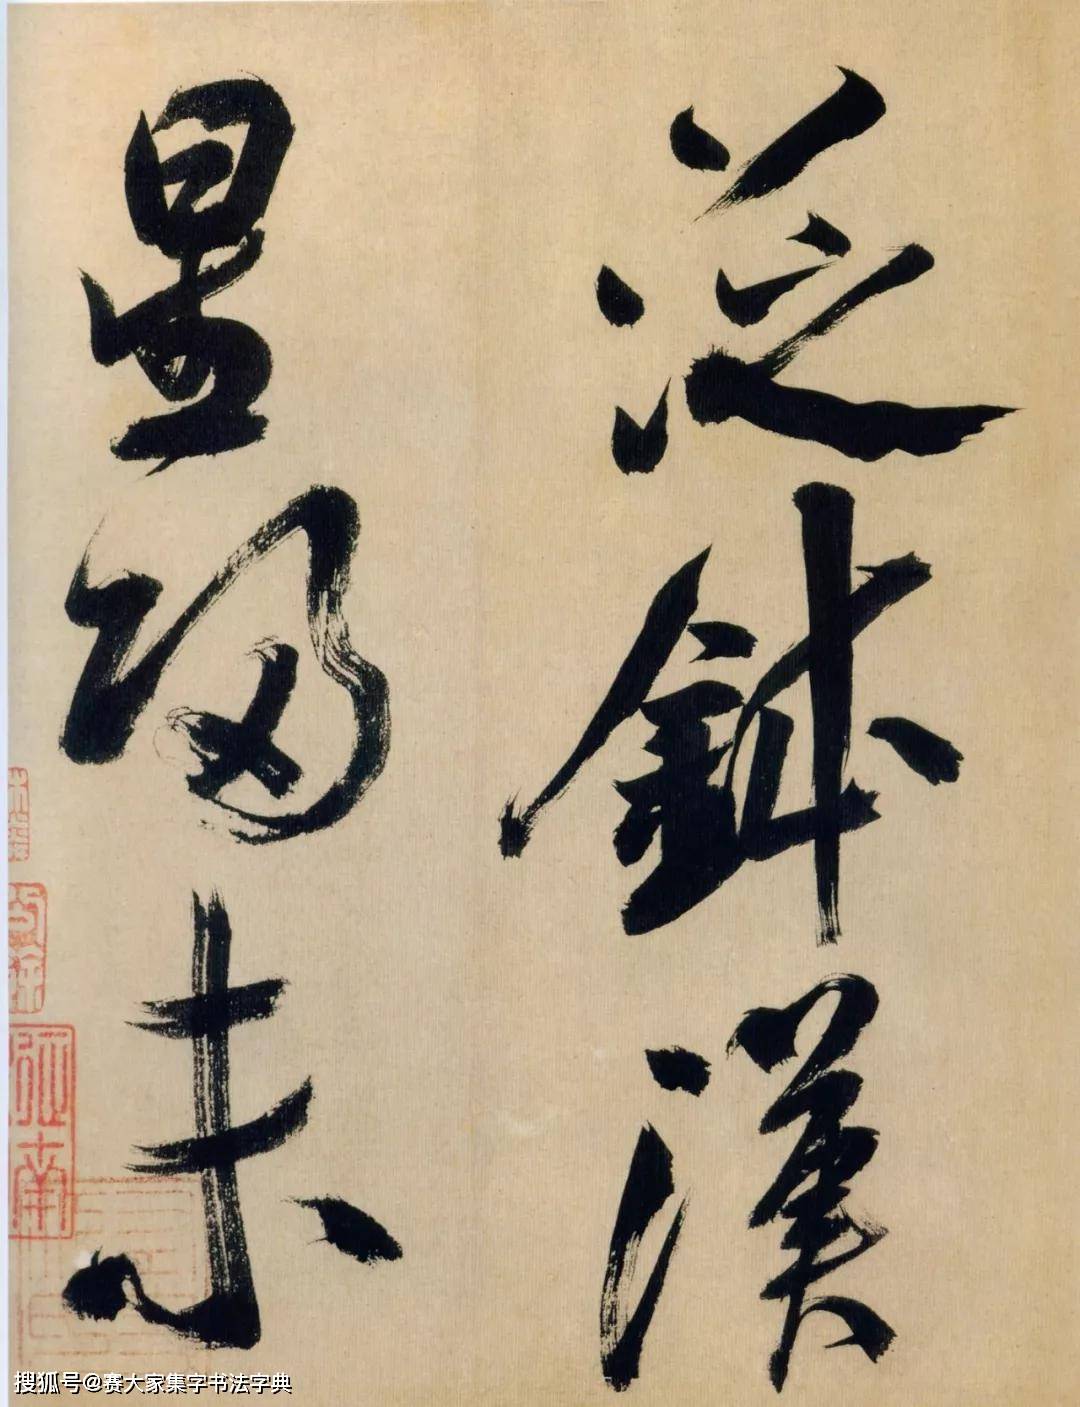 泛鉢漢
星歸未
搜狐号@赛大家集字书法字典